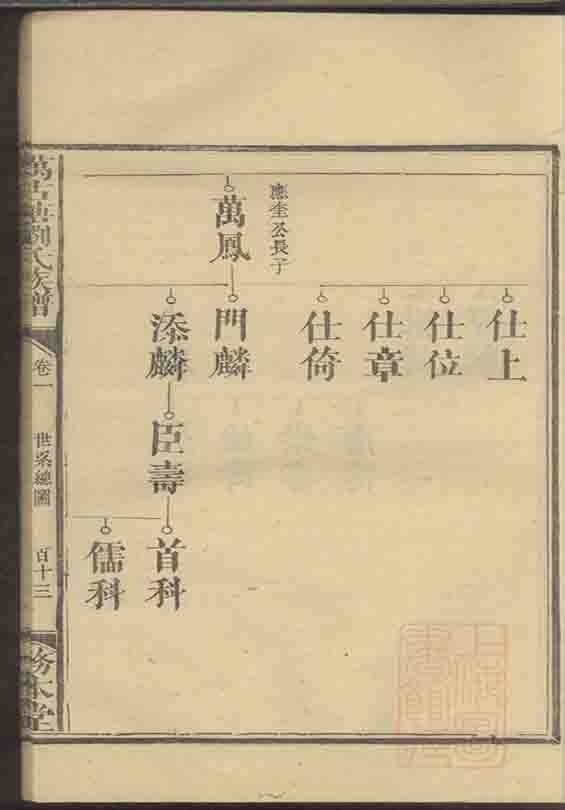 仕上
仕位
仕章
仕倚
應奎公長子
萬鳳
門麟
添麟
臣壽
首科
儒科
劉氏族譜
卷一
世系總圖
百十三
務本堂